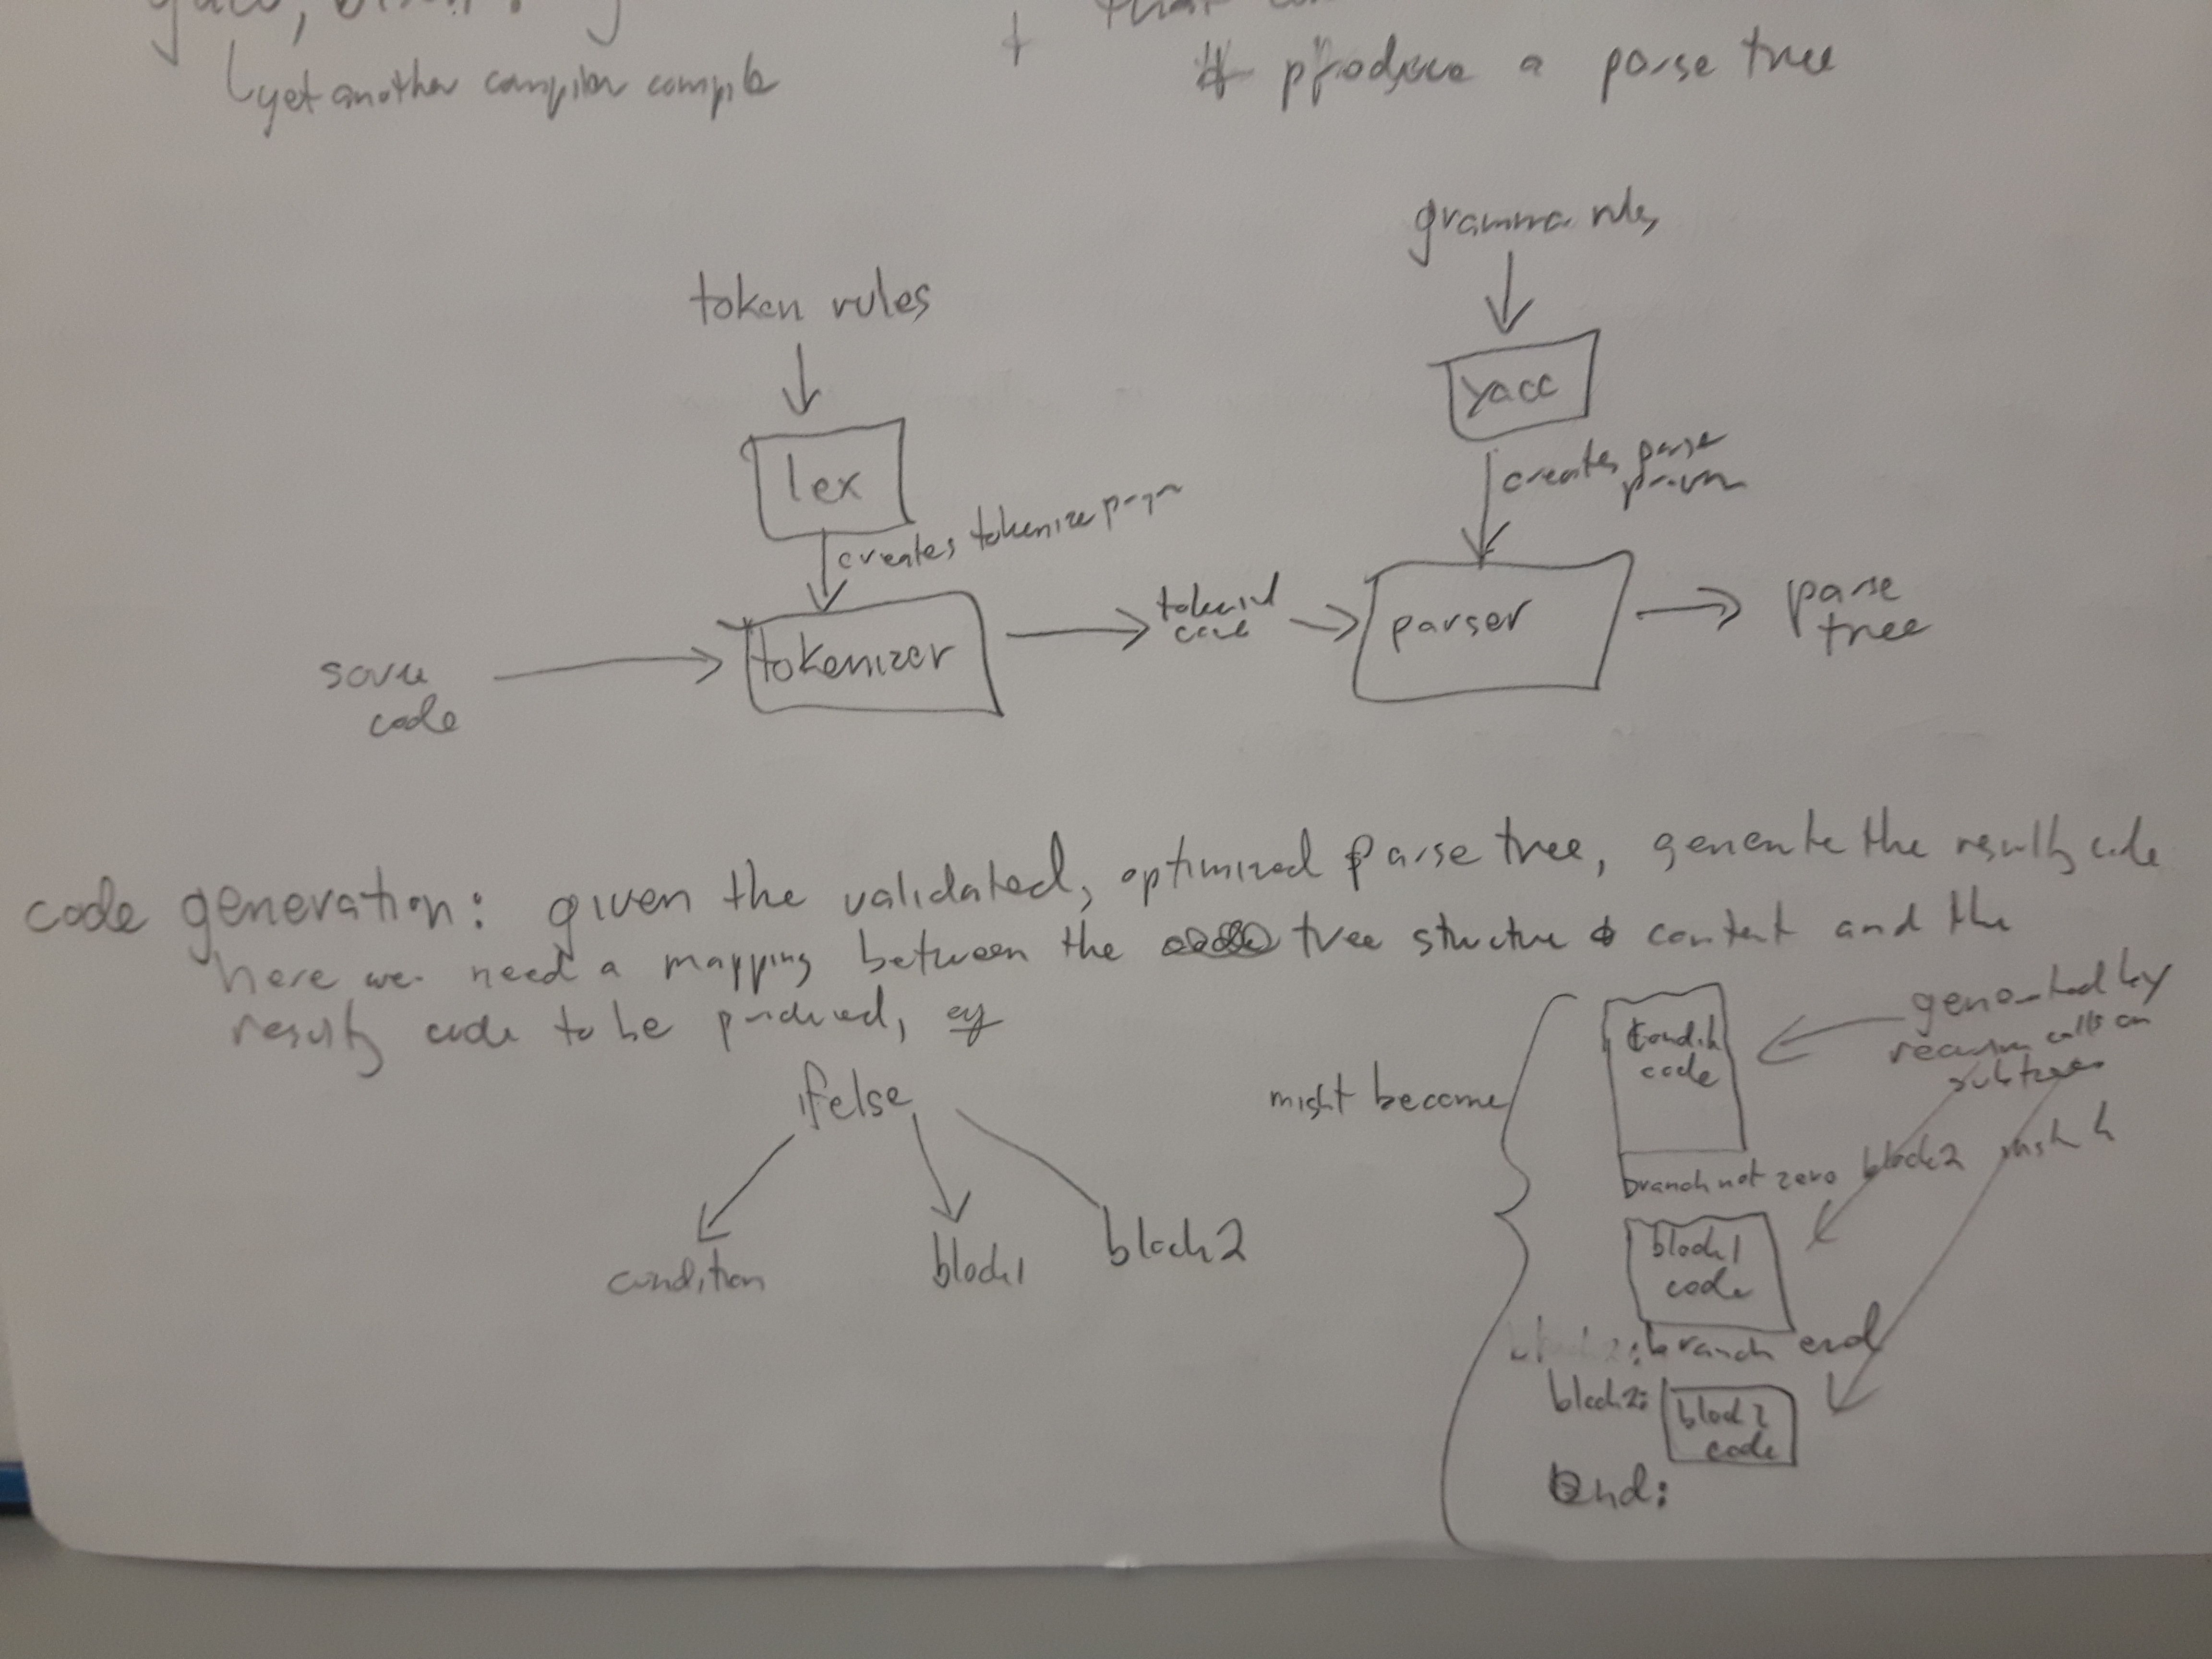 yet another compiler compile
produce a parse tree
grammar rules
token rules
yacc
lex
creates parse
creates tokenize
tokenizer
code
parser
parse
tree
source
code
code generation: given the validated, optimized parse tree, generate the resulting code
here we need a mapping between the tree structure & content and the
resulting code to be produced, eg
ifelse
condition
block1
block2
might become
condit
code
generated by
recursive calls on
subtrees
branch not zero block2
block1
code
branch end
block2:
block2
code
end: